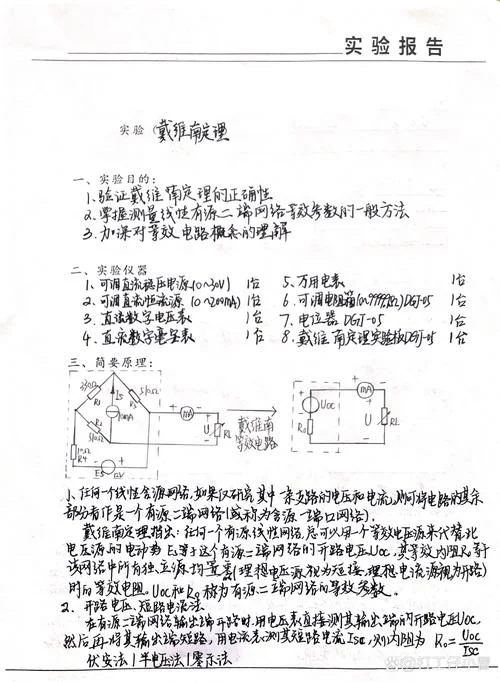 实验报告
实验(戴维南定理
一、实验目的:
1、验证戴维南定理的正确性
2、掌握测量线性有源二端网络等效参数的一般方法
3、加深对等效电路概念的理解
二、实验仪器
1、可调直流稳压电源(0~30V) 1台 5、万用表 1台
2、可调直流恒流源(0~200mA) 1台 6、可调电阻箱(0~99999.9Ω)DGJ-05 1台
3、直流数字电压表 1台 7、电位器DGJ-05 1台
4、直流数字毫安表 1台 8、戴维南定理实验板DGJ-05 1台
三、简要原理:
330Ω R1 Is 10mA 510Ω R3 510Ω R2 10Ω R4 Es 6V + mA - + U - RL
戴维南
等效电路
Uoc R0 + mA - + U - RL
1、任何一个线性含源网络,如果仅研究其中一条支路的电压和电流,则可将电路的其余
部分看作是一个有源二端网络(或称为含源一端口网络)。
戴维南定理指出:任何一个有源线性网络,总可以用一个等效电压源来代替,此
电压源的电动势Es等于这个有源二端网络的开路电压Uoc,其等效内阻R0等于
该网络中所有独立源均置零(理想电压源视为短接,理想电流源视为开路)
时的等效电阻。Uoc和R0称为有源二端网络的等效参数。
2、开路电压、短路电流法
在有源二端网络输出端开路时,用电压表直接测其输出端的开路电压Uoc,
然后再将其输出端短路,用电流表测其短路电流Isc,则内阻为 R0=Uoc/Isc
伏安法|半电压法|零示法